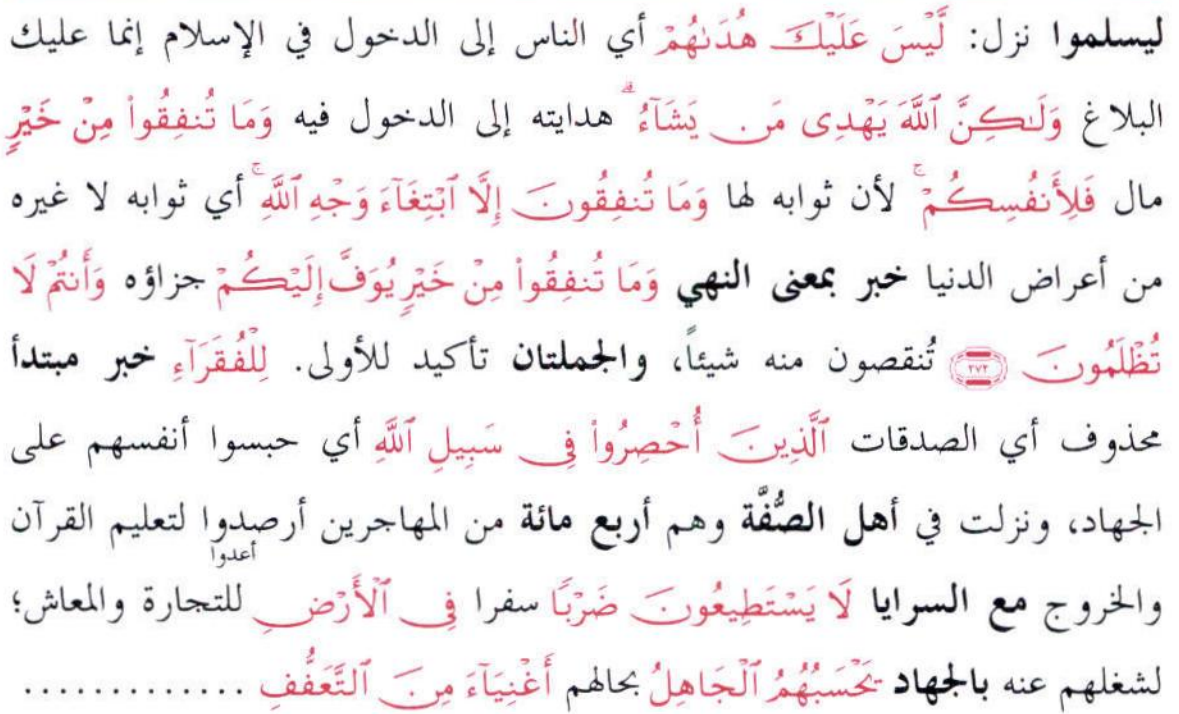 ليسلموا نزل: لَّيْسَ عَلَيْكَ هُدَىٰهُمْ أي الناس إلى الدخول في الإسلام إنما عليك
البلاغ وَلَـٰكِنَّ ٱللَّهَ يَهْدِى مَن يَشَآءُ ۗ هدايته إلى الدخول فيه وَمَا تُنفِقُوا۟ مِنْ خَيْرٍ
مال فَلِأَنفُسِكُمْ ۚ لأن ثوابه لها وَمَا تُنفِقُونَ إِلَّا ٱبْتِغَآءَ وَجْهِ ٱللَّهِ ۚ أي ثوابه لا غيره
من أعراض الدنيا خبر بمعنى النهي وَمَا تُنفِقُوا۟ مِنْ خَيْرٍ يُوَفَّ إِلَيْكُمْ جزاؤه وَأَنتُمْ لَا
تُظْلَمُونَ ٢٧٢ تُنقصون منه شيئاً، والجملتان تأكيد للأولى. لِلْفُقَرَآءِ خبر مبتدأ
محذوف أي الصدقات ٱلَّذِينَ أُحْصِرُوا۟ فِى سَبِيلِ ٱللَّهِ أي حبسوا أنفسهم على
الجهاد، ونزلت في أهل الصُّفَّة وهم أربع مائة من المهاجرين أرصدوا لتعليم القرآن
أعدوا
والخروج مع السرايا لَا يَسْتَطِيعُونَ ضَرْبًا سفرا فِى ٱلْأَرْضِ للتجارة والمعاش؛
لشغلهم عنه بالجهاد يَحْسَبُهُمُ ٱلْجَاهِلُ بحالهم أَغْنِيَآءَ مِنَ ٱلتَّعَفُّفِ ..............